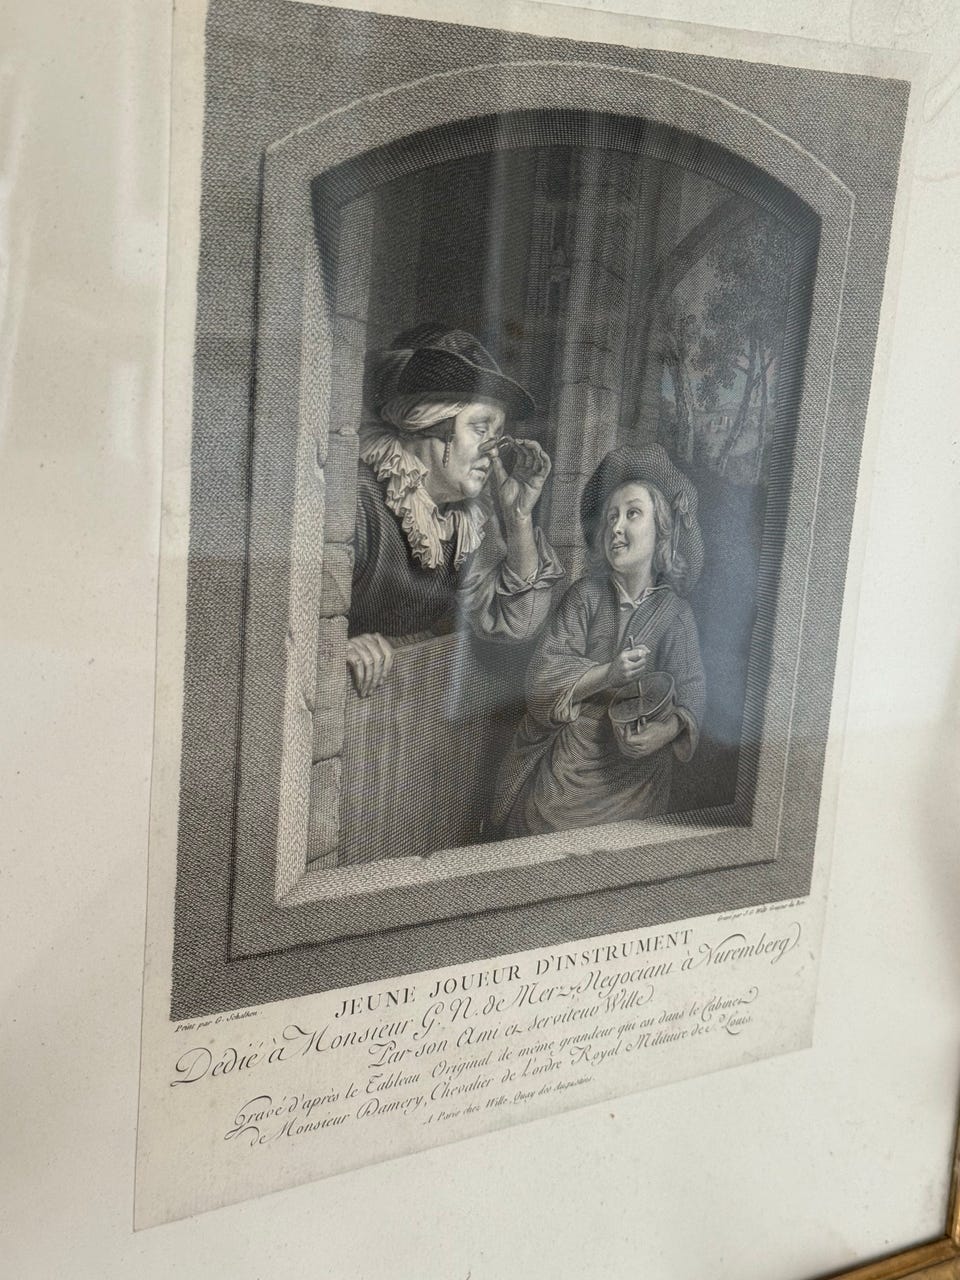 Peint par G. Schalken.
Gravé par J. G. Wille Graveur du Roi.
JEUNE JOUEUR D'INSTRUMENT
Dedié à Monsieur G. N. de Merz, Negociant à Nuremberg
Par son Ami et serviteur Wille.
Gravé d'après le Tableau Original de même grandeur qui est dans le Cabinet
de Monsieur Damery, Chevalier de l'ordre Royal Militaire de St. Louis.
A Paris chez Wille, Quay des Augustins.